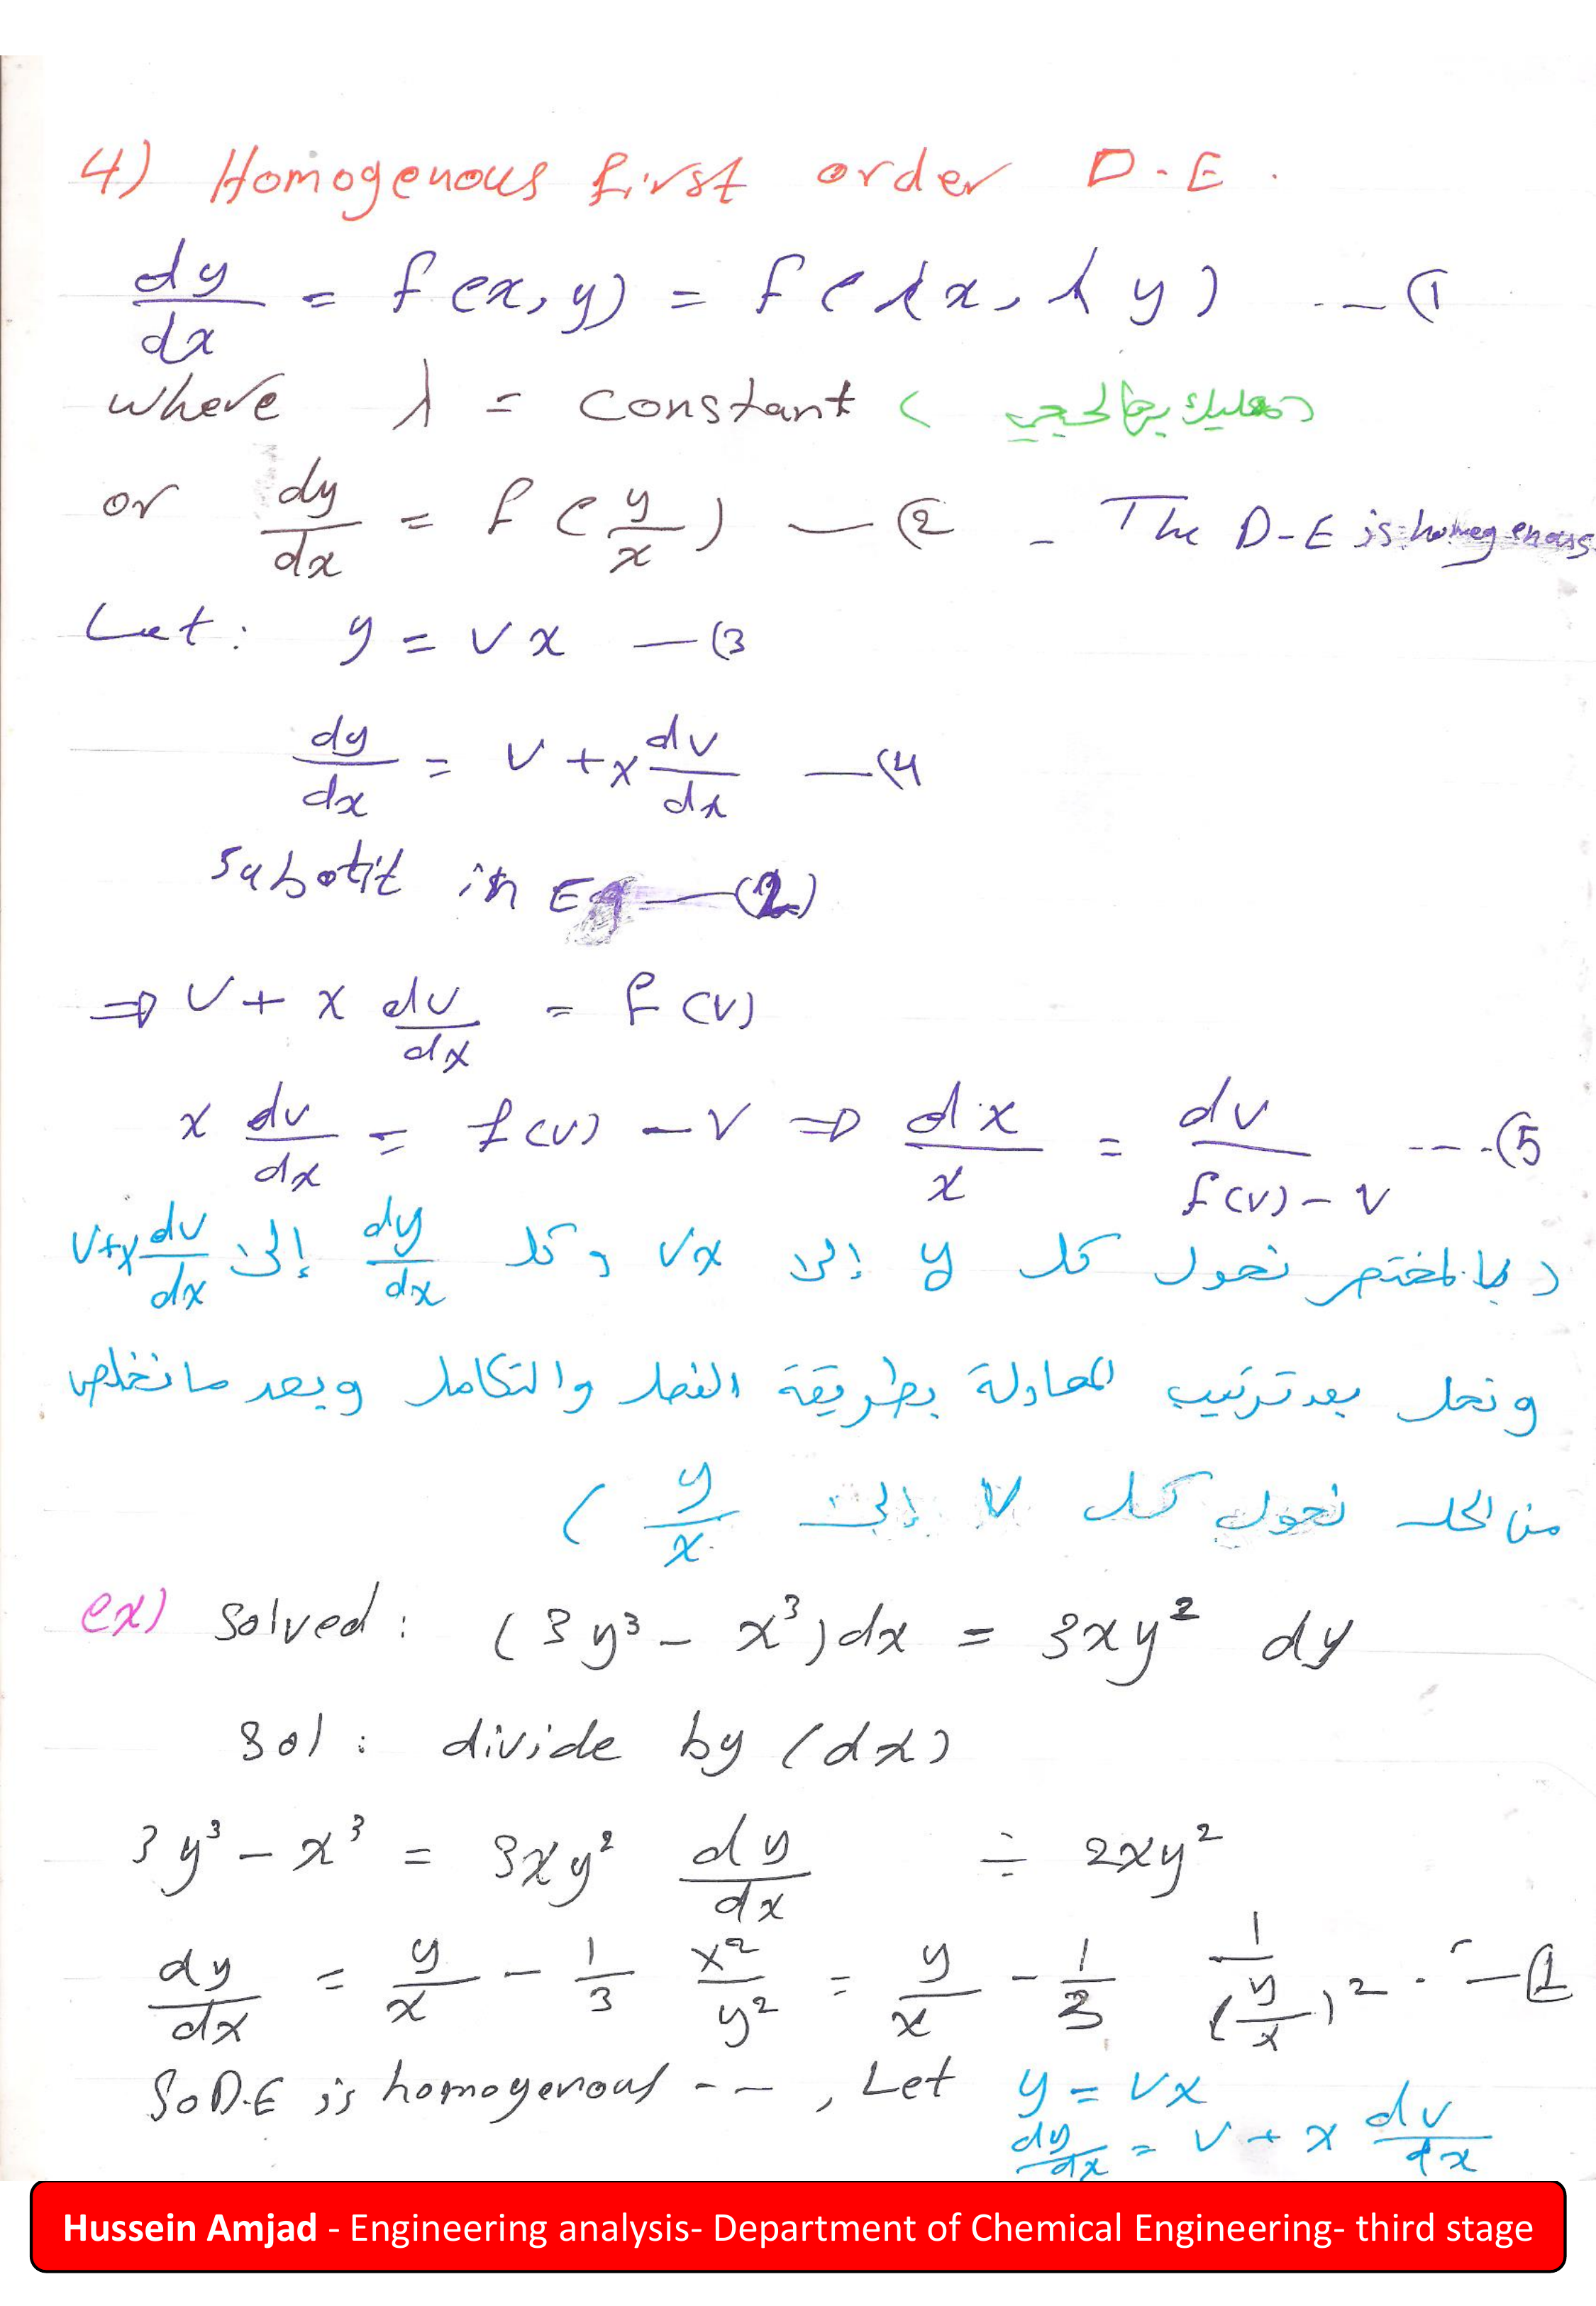 4) Homogenous first order D-E.
dy/dx = f(x, y) = f(λx, λy) --- (1
where λ = constant (معليك بهالحجي)
or dy/dx = f(y/x) — (2 - The D-E is homogenous
Let: y = vx — (3
dy/dx = v + x dv/dx — (4
Subotit in Eq — (2)
⇒ v + x dv/dx = f(v)
x dv/dx = f(v) - v ⇒ dx/x = dv/(f(v) - v) --- (5
(بالمختصر نحول كل y إلى vx وكل dy/dx إلى v+x dv/dx
ونحل بعد ترتيب المعادلة بطريقة الفصل والتكامل وبعد مانخلص
من الحل نحول كل v إلى y/x)
ex) Solved: (3y³ - x³)dx = 3xy² dy
Sol: divide by (dx)
3y³ - x³ = 3xy² dy/dx ÷ 2xy²
dy/dx = y/x - 1/3 x²/y² = y/x - 1/3 1/(y/x)² --- (1
So D.E is homogenous --, Let y = vx
dy/dx = v + x dv/dx
Hussein Amjad - Engineering analysis- Department of Chemical Engineering- third stage